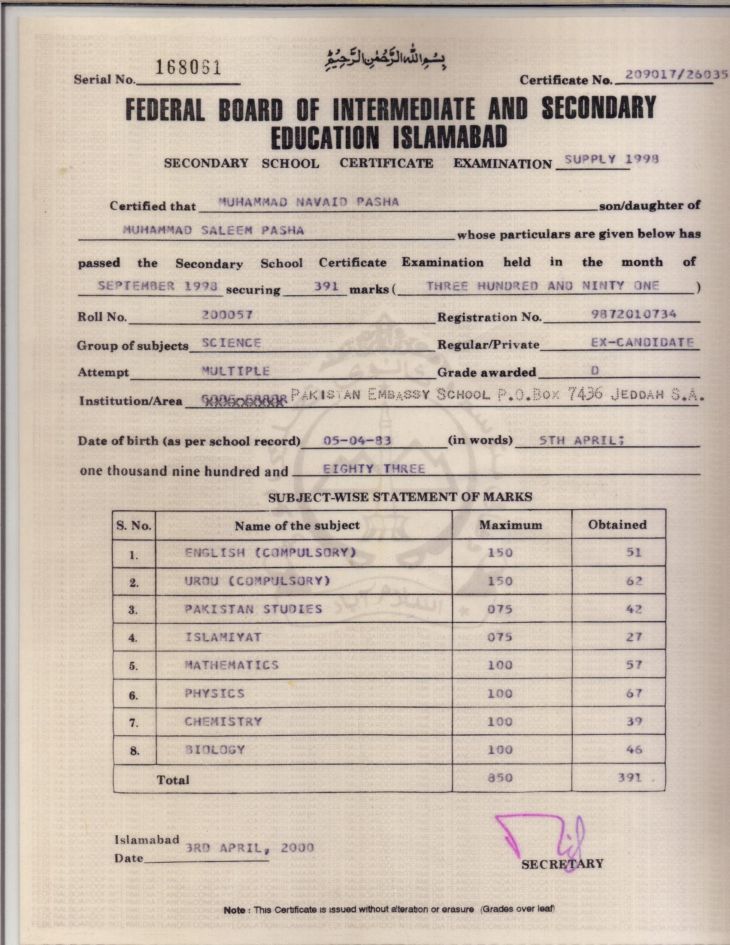 بسم الله الرحمن الرحيم
Serial No. 168061
Certificate No. 209017/26035
FEDERAL BOARD OF INTERMEDIATE AND SECONDARY
EDUCATION ISLAMABAD
SECONDARY SCHOOL CERTIFICATE EXAMINATION SUPPLY 1998
Certified that MUHAMMAD NAVAID PASHA son/daughter of
MUHAMMAD SALEEM PASHA whose particulars are given below has
passed the Secondary School Certificate Examination held in the month of
SEPTEMBER 1998 securing 391 marks ( THREE HUNDRED AND NINTY ONE )
Roll No. 200057 Registration No. 9872010734
Group of subjects SCIENCE Regular/Private EX-CANDIDATE
Attempt MULTIPLE Grade awarded D
Institution/Area PAKISTAN EMBASSY SCHOOL P.O.BOX 7436 JEDDAH S.A.
Date of birth (as per school record) 05-04-83 (in words) 5TH APRIL;
one thousand nine hundred and EIGHTY THREE
SUBJECT-WISE STATEMENT OF MARKS
S. No. Name of the subject Maximum Obtained
1. ENGLISH (COMPULSORY) 150 51
2. URDU (COMPULSORY) 150 62
3. PAKISTAN STUDIES 075 42
4. ISLAMIYAT 075 27
5. MATHEMATICS 100 57
6. PHYSICS 100 67
7. CHEMISTRY 100 39
8. BIOLOGY 100 46
Total 850 391
Islamabad
Date 3RD APRIL, 2000
SECRETARY
Note : This Certificate is issued without alteration or erasure (Grades over leaf)